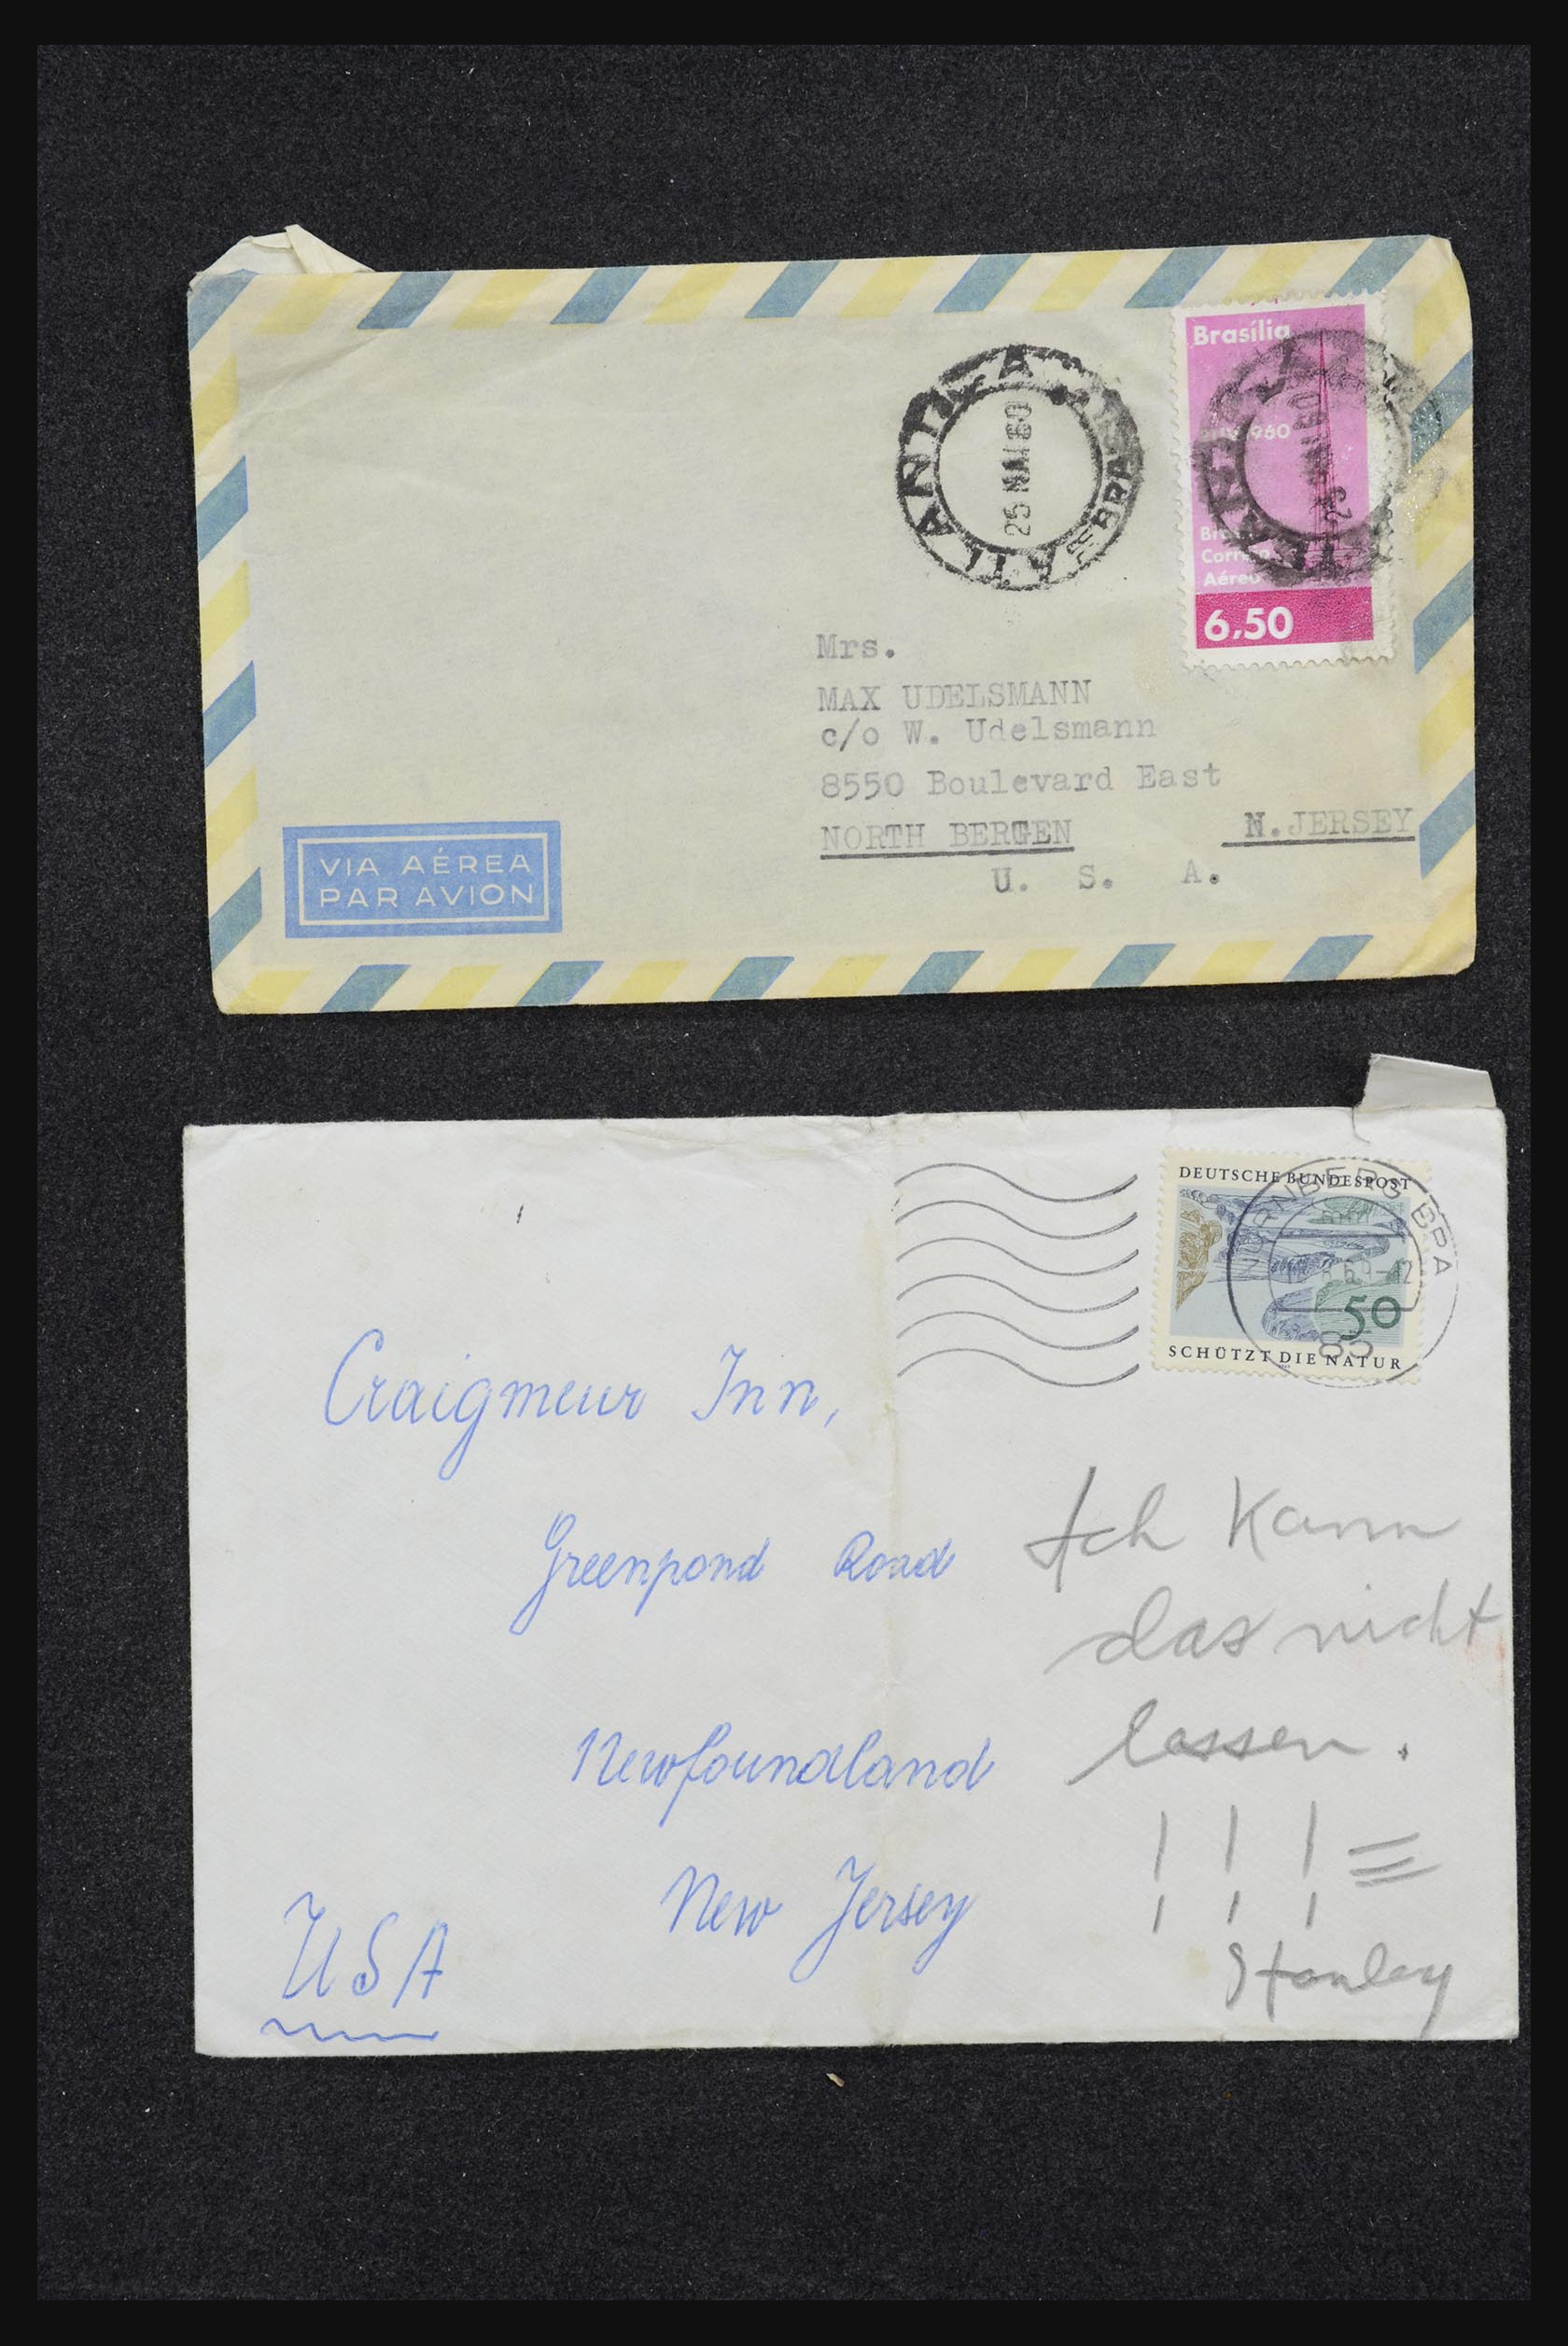 Brasília
1960
Correio
Aéreo
6,50
25 MAI 60
Mrs.
MAX UDELSMANN
c/o W. Udelsmann
8550 Boulevard East
NORTH BERGEN N.JERSEY
U. S. A.
VIA AÉREA
PAR AVION
DEUTSCHE BUNDESPOST
50
SCHÜTZT DIE NATUR
85
Craigmeur Inn,
Greenpond Road
Newfoundland
New Jersey
USA
Ich kann
das nicht
lassen.
! ! !
Stanley